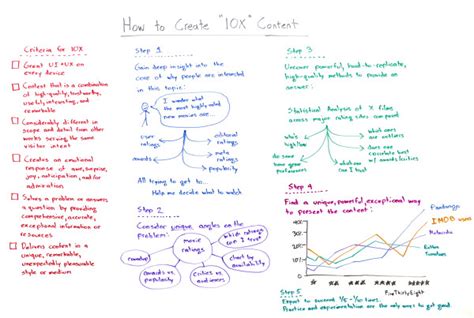 How to Create "10X" Content
Criteria for 10X
Great UI + UX on
every device
Content that is a combination
of high-quality, trustworthy,
useful, interesting, and
remarkable
Considerably different in
scope and detail from other
works serving the same
visitor intent
Creates an emotional
response of awe, surprise,
joy, anticipation, and/or
admiration
Solves a problem or answers
a question by providing
comprehensive, accurate,
exceptional information or
resources
Delivers content in a
unique, remarkable,
unexpectedly pleasurable
style or medium
Step 1
Gain deep insight into the
core of why people are interested
in this topic:
I wonder what
the most highly rated
new movies are...
user
ratings
awards
editorial
ratings
meta
ratings
popularity
All trying to get to...
Help me decide what to watch
Step 2
Consider unique angles on the
problem:
movie
ratings
which ratings
can I trust
chart by
availability
critics vs.
audiences
awards vs.
popularity
Step 3
Uncover powerful, hard-to-replicate,
high-quality methods to provide an
answer:
Statistical Analysis of X films
across major rating sites compared
who's
high/low
do some
have great
preferences
what can
I trust
what ones
are outliers
does one
correlate best
w/ awards/critics
Step 4
Find a unique, powerful, exceptional way
to present the content:
Fandango
IMDB users
Metacritic
Rotten
Tomatoes
FiveThirtyEight
Step 5
Expect to succeed 1/5 - 1/10 times.
Practice and experimentation are the only ways to get good.